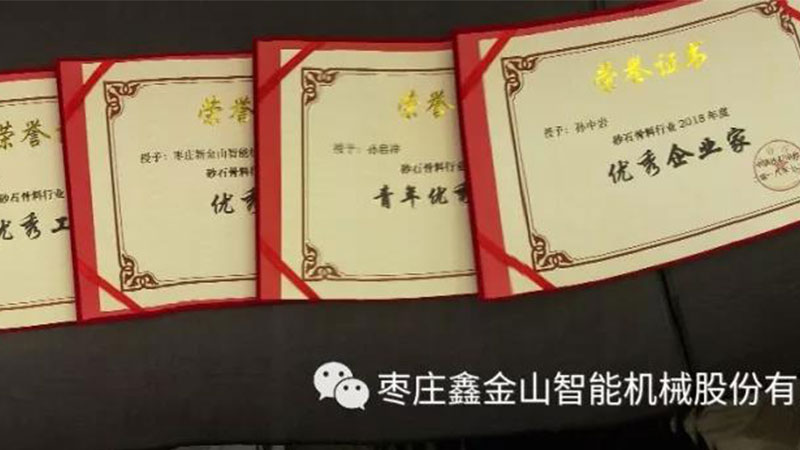 荣誉
砂石骨料行业
优秀工
荣
授予：枣庄新金山智能
砂石骨料行业
优秀
荣誉
授予：
砂石骨料行业
青年优秀
荣誉证书
授予：孙中岩
砂石骨料行业2018年度
优秀企业家
枣庄鑫金山智能机械股份有